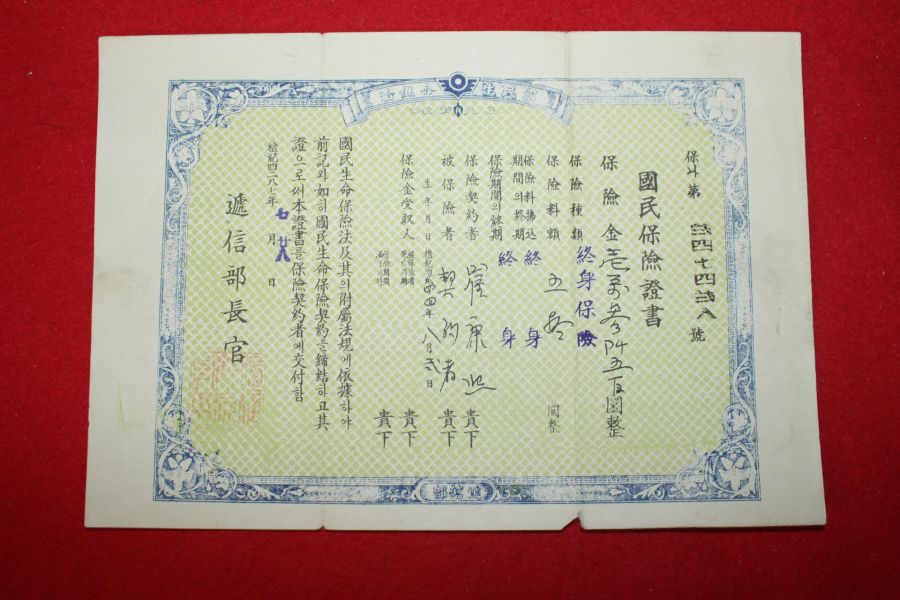 保 第 弐四七四弐八 號
國民保險證書
保險金 壱萬參阡五百圜整
保險種類 終身保險
保險料額 五拾 圜整
保險料拂込期間의終期 終身
保險期間의終期 終身
保險契約者 崔 熙 貴下
被保險者 契約者 貴下
生年月日 檀紀四弐四四年八月弐日
保險金受取人 貴下
貴下
國民生命保險法及其의附屬法規에依據하야
前記와如히國民生命保險契約을締結하고其
證으로써本證書를保險契約者에交付함
檀紀四二八七年 七月 廿八日
遞信部長官